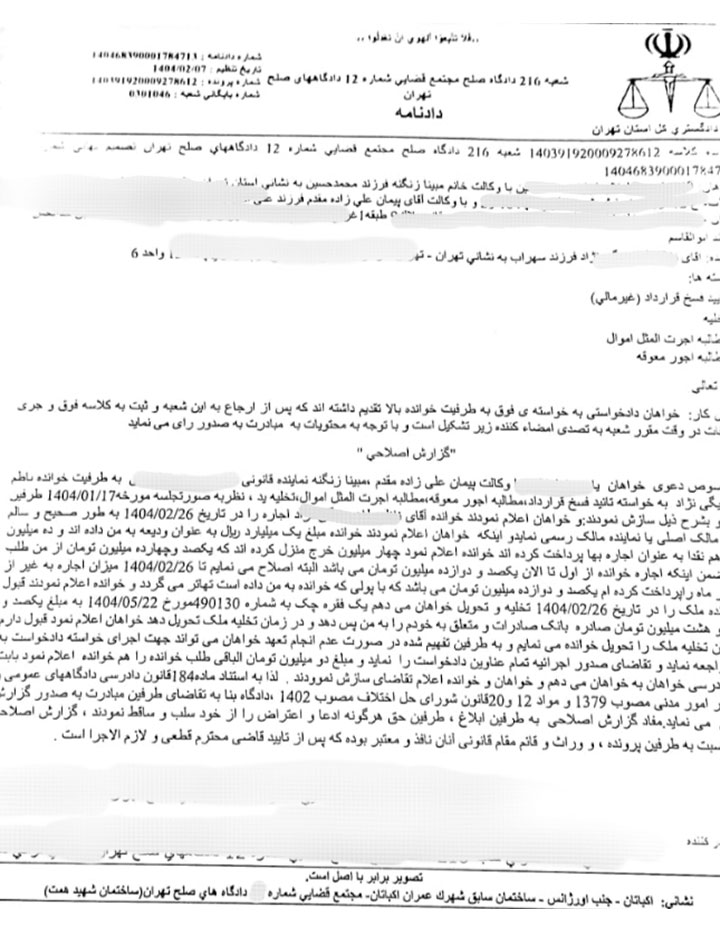 ..فلا تتبعوا الهوي ان تعدلوا ..
شماره دادنامه : 140468390001784713
تاریخ تنظیم : 1404/02/07
شماره پرونده : 140391920009278612
شماره بایگانی شعبه : 0301046
شعبه 216 دادگاه صلح مجتمع قضایی شماره 12 دادگاههای صلح
تهران
دادنامه
دادگستري كل استان تهران
کلاسه 140391920009278612 شعبه 216 دادگاه صلح مجتمع قضایی شماره 12 دادگاههای صلح تهران تصمیم نهایی
14046839000178471
با وکالت خانم مبینا زنگنه فرزند محمدحسین به نشانی استان
و با وکالت آقای پیمان علی زاده مقدم فرزند
طبقه1
ابوالقاسم
آقای نژاد فرزند سهراب به نشانی تهران - واحد 6
ها:
فسخ قرارداد (غیرمالی)
اجرت المثل اموال
اجور معوقه
تعالی
کار: خواهان دادخواستی به خواسته ی فوق به طرفیت خوانده بالا تقدیم داشته اند که پس از ارجاع به این شعبه و ثبت به کلاسه فوق و جری
در وقت مقرر شعبه به تصدی امضاء کننده زیر تشکیل است و با توجه به محتویات به مبادرت به صدور رای می نماید
"گزارش اصلاحی "
دعوی خواهان وکالت پیمان علی زاده مقدم ،مبینا زنگنه نماینده قانونی به طرفیت خوانده
نژاد به خواسته تائید فسخ قرارداد،مطالبه اجور معوقه،مطالبه اجرت المثل اموال،تخلیه ید ، نظربه صورتجلسه مورخه1404/01/17 طرفین
بشرح ذیل سازش نمودند:و خواهان اعلام نمودند خوانده آقای اجاره را در تاریخ 1404/02/26 به طور صحیح و سالم
مالک اصلی یا نماینده مالک رسمی نمایدو اینکه خواهان اعلام نمودند خوانده مبلغ یک میلیارد ریال به عنوان ودیعه به من داده اند و ده میلیون
نقدا به عنوان اجاره بها پرداخت کرده اند خوانده اعلام نمود چهار میلیون خرج منزل کرده اند که یکصد وچهارده میلیون تومان از من طلب
اینکه اجاره خوانده از اول تا الان یکصد و دوازده میلیون تومان می باشد البته اصلاح می نمایم تا 1404/02/26 میزان اجاره به غیر از
ماه راپرداخت کرده ام یکصد و دوازده میلیون تومان می باشد که با پولی که خوانده به من داده است تهاتر می گردد و خوانده اعلام نمودند قبول
ملک را در تاریخ 1404/02/26 تخلیه و تحویل خواهان می دهم یک فقره چک به شماره 490130مورخ 1404/05/22 به مبلغ یکصد و
هشت میلیون تومان صادره بانک صادرات و متعلق به خودم را به من پس دهد و در زمان تخلیه ملک تحویل دهد خواهان اعلام نمود قبول دارم
تخلیه ملک را تحویل خوانده می نمایم و به طرفین تفهیم شده در صورت عدم انجام تعهد خواهان می تواند جهت اجرای خواسته دادخواست به
نماید و تقاضای صدور اجرائیه تمام عناوین دادخواست را نماید و مبلغ دو میلیون تومان الباقی طلب خوانده را هم خوانده اعلام نمود بابت
خواهان به خواهان می دهم و خواهان و خوانده اعلام تقاضای سازش نموودند . لذا به استناد ماده184قانون دادرسی دادگاههای عمومی و
امور مدنی مصوب 1379 و مواد 12 و20قانون شورای حل اختلاف مصوب 1402 ،دادگاه بنا به تقاضای طرفین مبادرت به صدور گزارش
می نماید.مفاد گزارش اصلاحی به طرفین ابلاغ ، طرفین حق هرگونه ادعا و اعتراض را از خود سلب و ساقط نمودند ، گزارش اصلاحی
به طرفین پرونده ، و وراث و قائم مقام قانونی آنان نافذ و معتبر بوده که پس از تایید قاضی محترم قطعی و لازم الاجرا است .
کننده
تصویر برابر با اصل است.
نشانی: اکباتان - جنب اورژانس - ساختمان سابق شهرک عمران اکباتان- مجتمع قضایی شماره دادگاه های صلح تهران(ساختمان شهید همت)